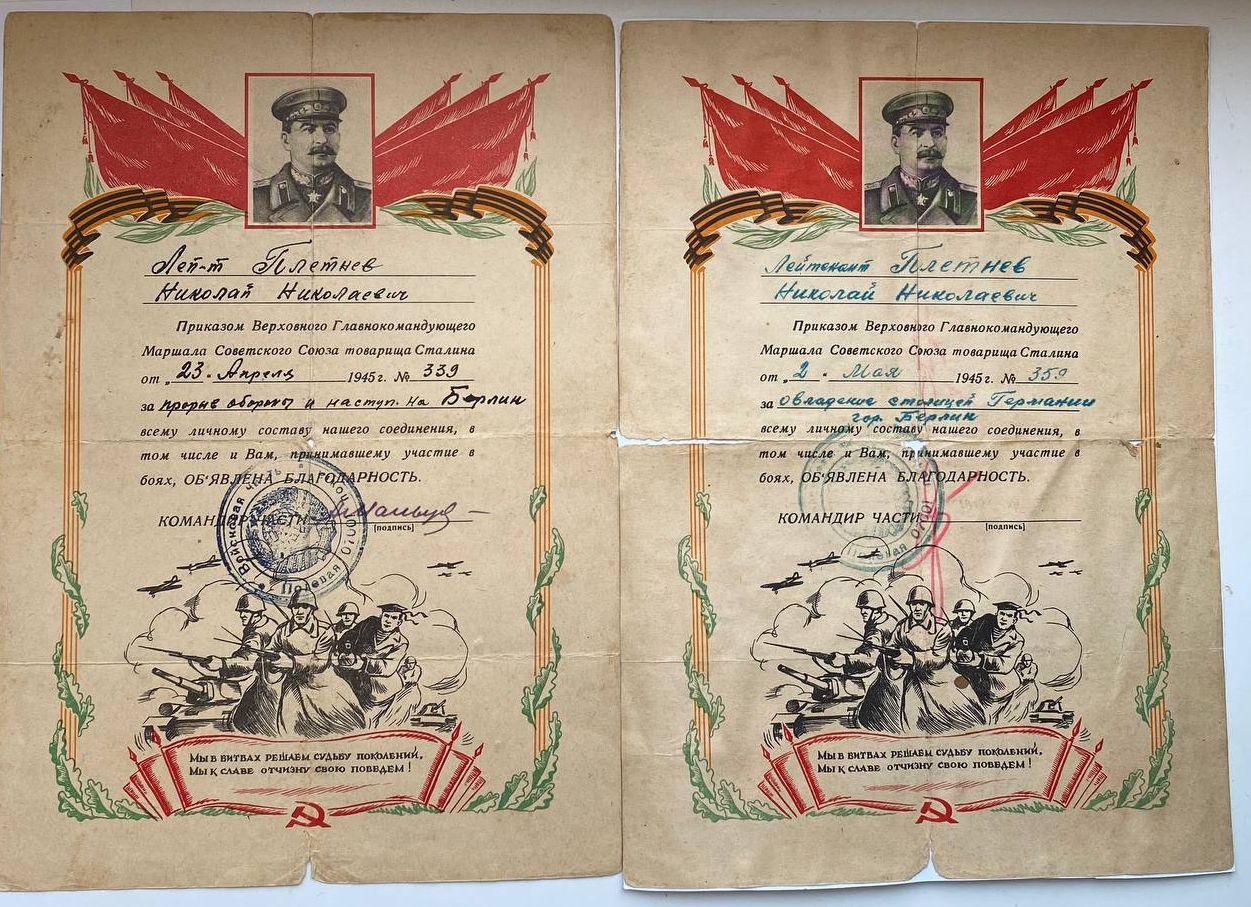 Лей-т Плетнев
Николай Николаевич
Приказом Верховного Главнокомандующего
Маршала Советского Союза товарища Сталина
от „23" Апреля 1945 г. № 339
за прорыв обороны и наступ. на Берлин
всему личному составу нашего соединения, в
том числе и Вам, принимавшему участие в
боях, ОБ'ЯВЛЕНА БЛАГОДАРНОСТЬ.
КОМАНДИР ЧАСТИ
(подпись)
Войсковая часть Полевая почта
Мы в битвах решаем судьбу поколений,
Мы к славе отчизну свою поведем!
Лейтенант Плетнев
Николай Николаевич
Приказом Верховного Главнокомандующего
Маршала Советского Союза товарища Сталина
от „2" Мая 1945 г. № 359
за овладение столицей Германии
гор. Берлин
всему личному составу нашего соединения, в
том числе и Вам, принимавшему участие в
боях, ОБ'ЯВЛЕНА БЛАГОДАРНОСТЬ.
КОМАНДИР ЧАСТИ
(подпись)
Мы в битвах решаем судьбу поколений,
Мы к славе отчизну свою поведем!